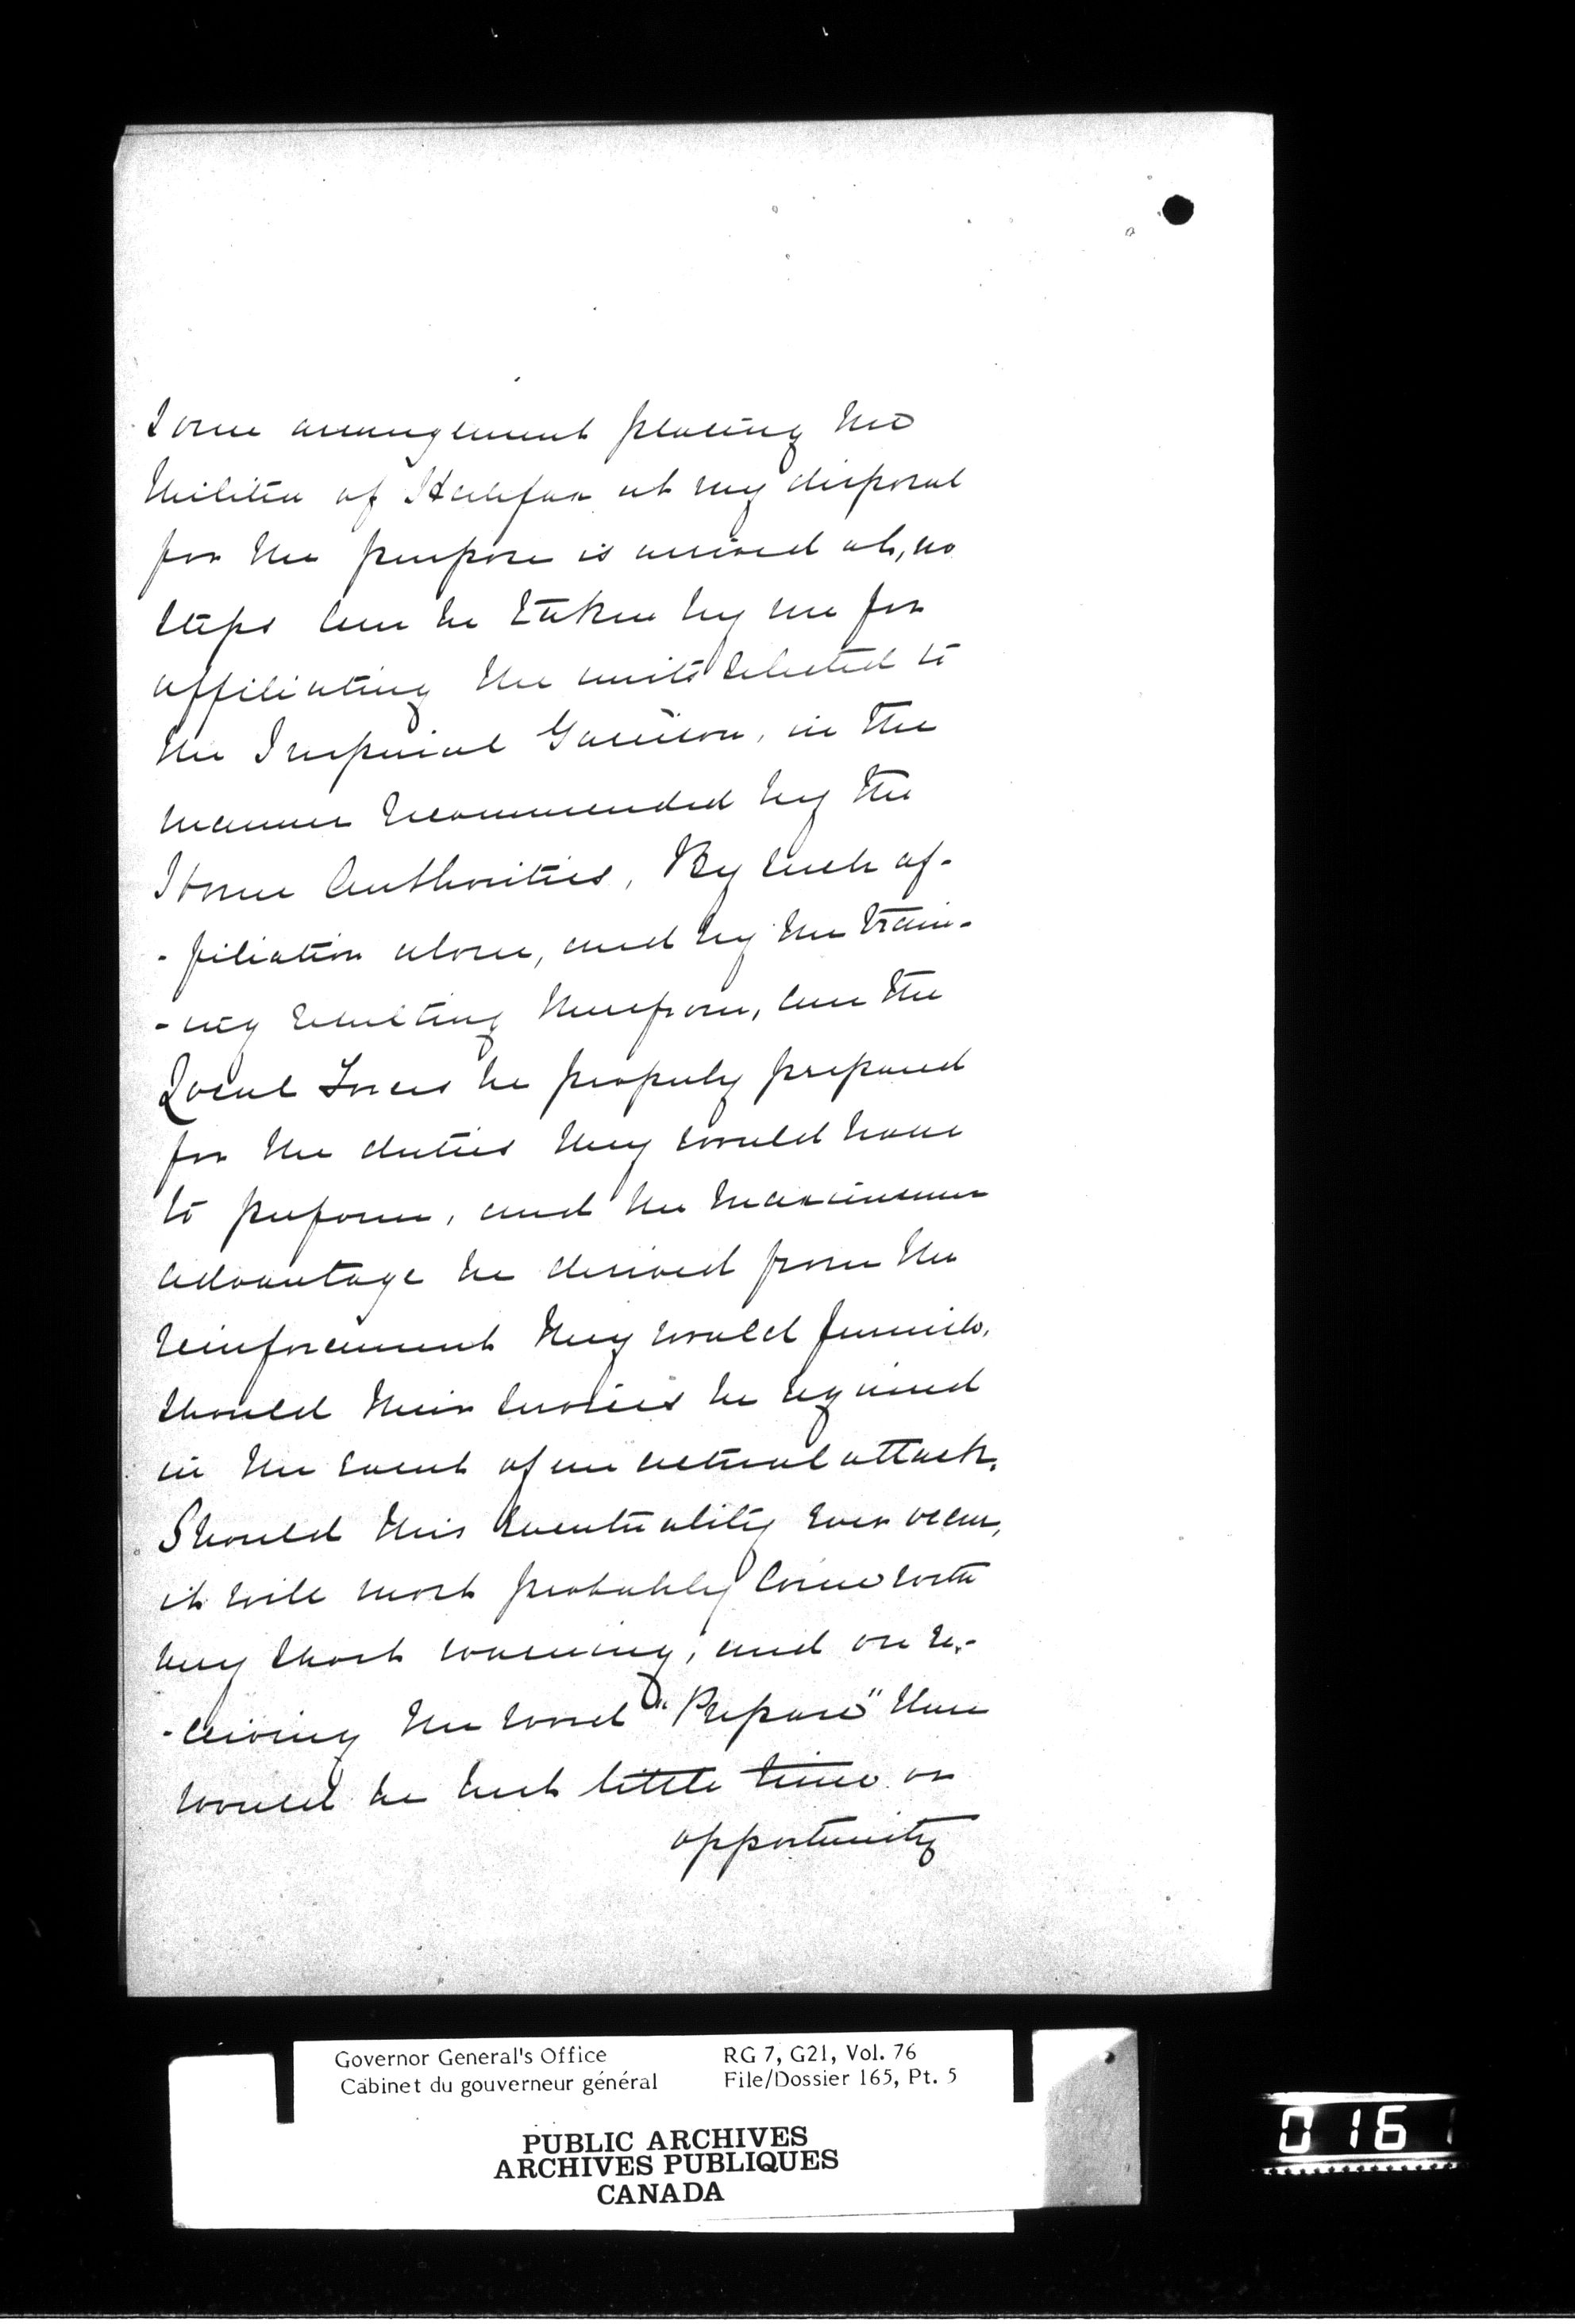 some arrangement placing the
Militia of Halifax at my disposal
for the purpose is arrived at, no
steps can be taken by me for
affiliating the units selected to
the Imperial Garrison, in the
manner recommended by the
Home Authorities. By such af-
-filiation alone, and by the train-
-ing resulting therefrom, can the
Local Forces be properly prepared
for the duties they would have
to perform, and the maximum
advantage be derived from the
reinforcement they would furnish,
should their services be required
in the event of an actual attack.
Should this eventuality ever occur,
it will most probably come with
very short warning, and on re-
-ceiving the word "Prepare" there
would be but little time or
opportunity
Governor General's Office
Cabinet du gouverneur général
RG 7, G21, Vol. 76
File/Dossier 165, Pt. 5
PUBLIC ARCHIVES
ARCHIVES PUBLIQUES
CANADA
016